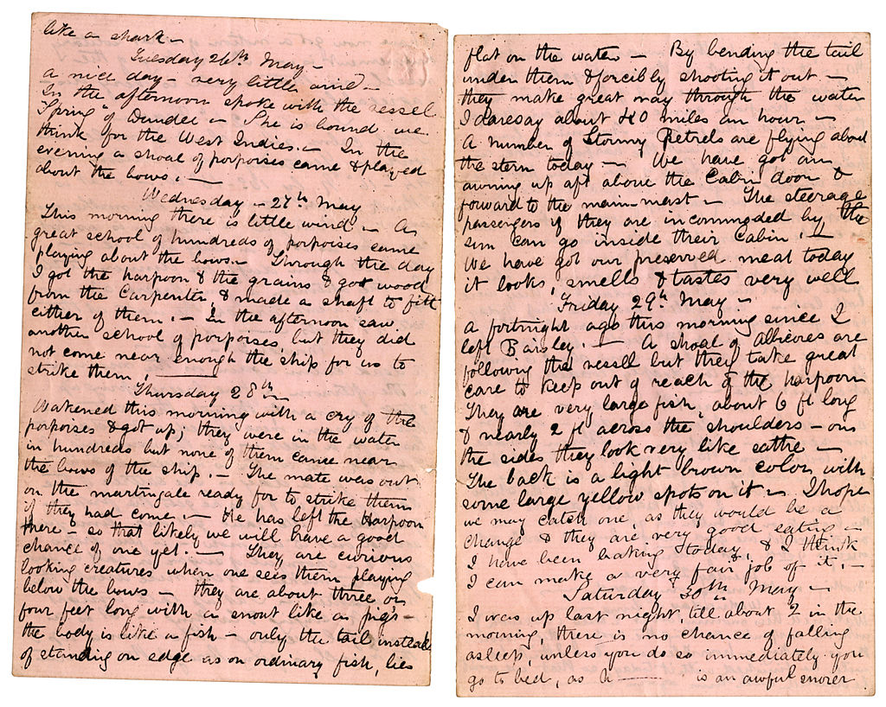 like a shark –
Tuesday 26th May –
a nice day – very little wind –
In the afternoon spoke with the vessel
"Spring" of Dundee – She is bound we
think for the West Indies. – In the
evening a shoal of porpoises came & played
about the bows. –
Wednesday – 27th May
This morning there is little wind – A
great school of hundreds of porpoises came
playing about the bows. – Through the day
I got the harpoon & the grains & got wood
from the Carpenter & made a shaft to fitt
either of them. – In the afternoon saw
another school of porpoises but they did
not come near enough the ship for us to
strike them. –
Thursday 28th –
Wakened this morning with a cry of the
porpoises & got up; they were in the water
in hundreds but none of them came near
the bows of the ship. – The mate was out
on the martingale ready for to strike them
if they had come. – He has left the Harpoon
there – so that likely we will have a good
chance of one yet. – They are curious
looking creatures when one sees them playing
below the bows – they are about three or
four feet long with a snout like a pigs –
the body is like a fish – only the tail instead
of standing on edge as on ordinary fish, lies
flat on the water – By bending the tail
under them & forcibly shooting it out –
they make great way through the water
I daresay about 40 miles an hour –
A number of Stormy Petrels are flying about
the stern today – We have got an
awning up aft above the Cabin door &
forward to the mainmast – The steerage
passengers if they are incommoded by the
sun can go inside their Cabin. –
We have got our preserved meat today
it looks, smells & tastes very well
Friday 29th May –
a fortnight ago this morning since I
left Paisley. – A shoal of Albicores are
following the vessell but they take great
care to keep out of reach of the harpoon
They are very large fish, about 6 ft long
& nearly 2 ft across the shoulders – on
the sides they look very like saithe –
The back is a light brown color with
some large yellow spots on it – I hope
we may catch one, as they would be a
change & they are very good eating –
I have been baking today, & I think
I can make a very fair job of it. –
Saturday 30th May –
I was up last night, till about 2 in the
morning, there is no chance of falling
asleep, unless you do so immediately you
go to bed, as is an awful snorer